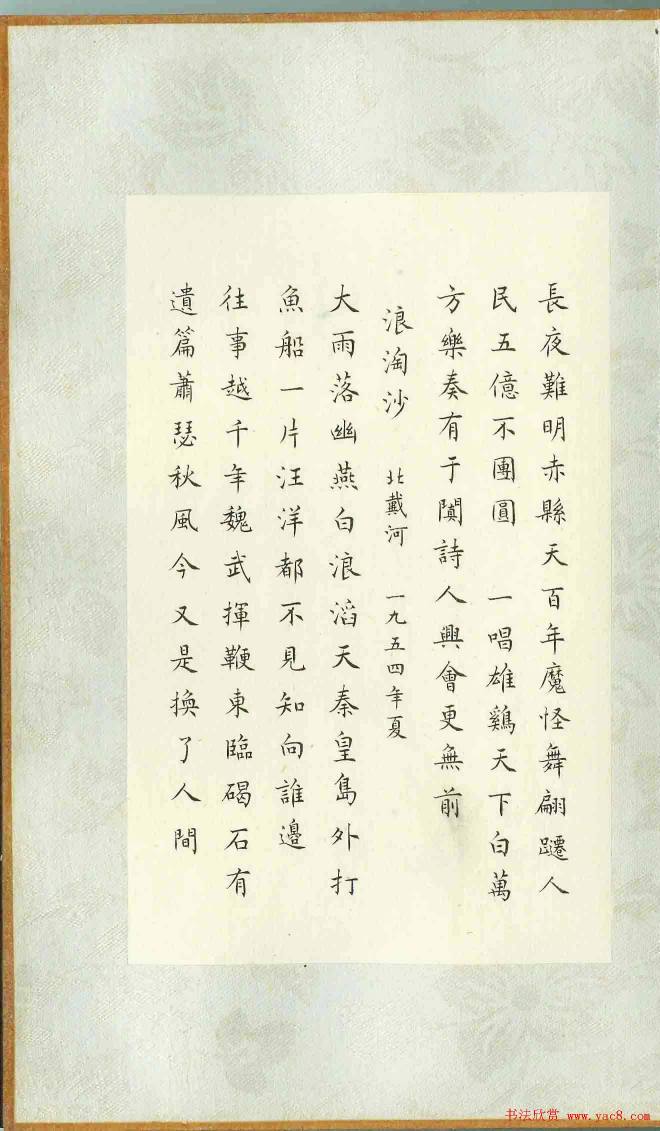 長夜難明赤縣天百年魔怪舞翩躚人
民五億不團圓　一唱雄鷄天下白萬
方樂奏有于闐詩人興會更無前
浪淘沙　北戴河　一九五四年夏
大雨落幽燕白浪滔天秦皇島外打
魚船一片汪洋都不見知向誰邊
往事越千年魏武揮鞭東臨碣石有
遺篇蕭瑟秋風今又是換了人間
书法欣赏 www.yac8.com